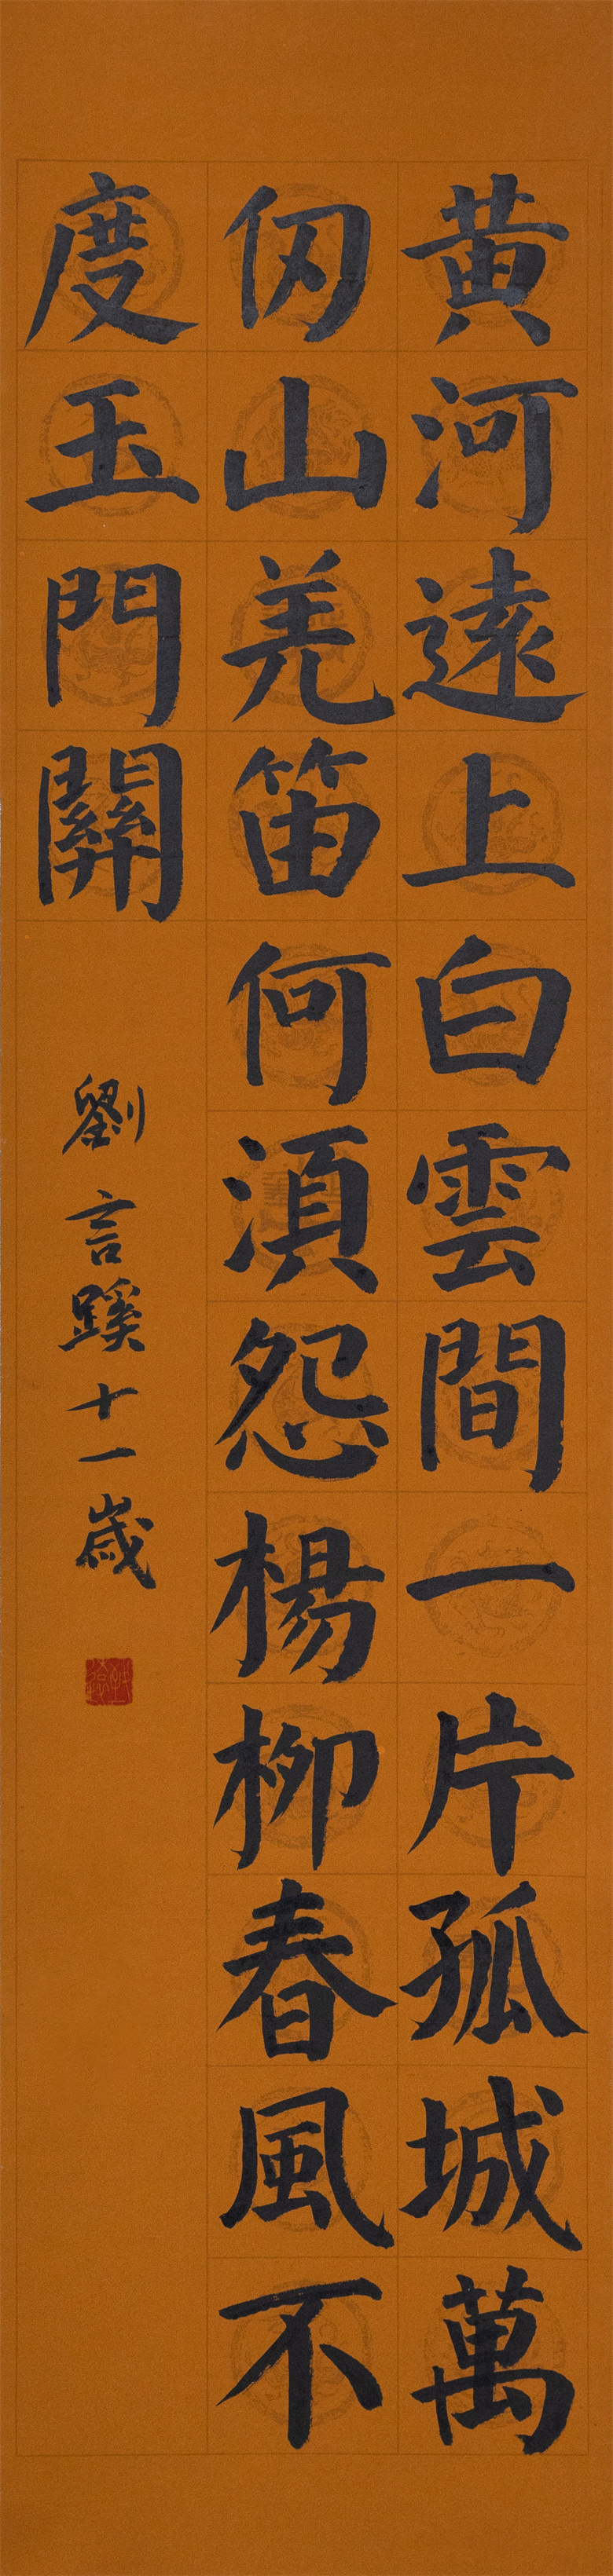 黄河遠上白雲間一片孤城萬
仞山羌笛何湏怨楊柳春風不
度玉門關
劉言蹊十一歲